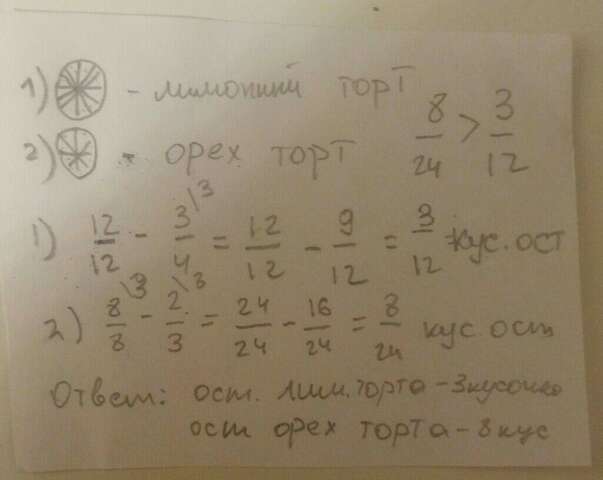 1) - лимонний торт
2) - орех торт
8/24 > 3/12
1) 12/12 - 3/4 \3 = 12/12 - 9/12 = 3/12 кус. ост
2) 8/8 \3 - 2/3 \8 = 24/24 - 16/24 = 8/24 кус. ост
Ответ: ост. лим. торта - 3 кусочка
ост орех торта - 8 кус